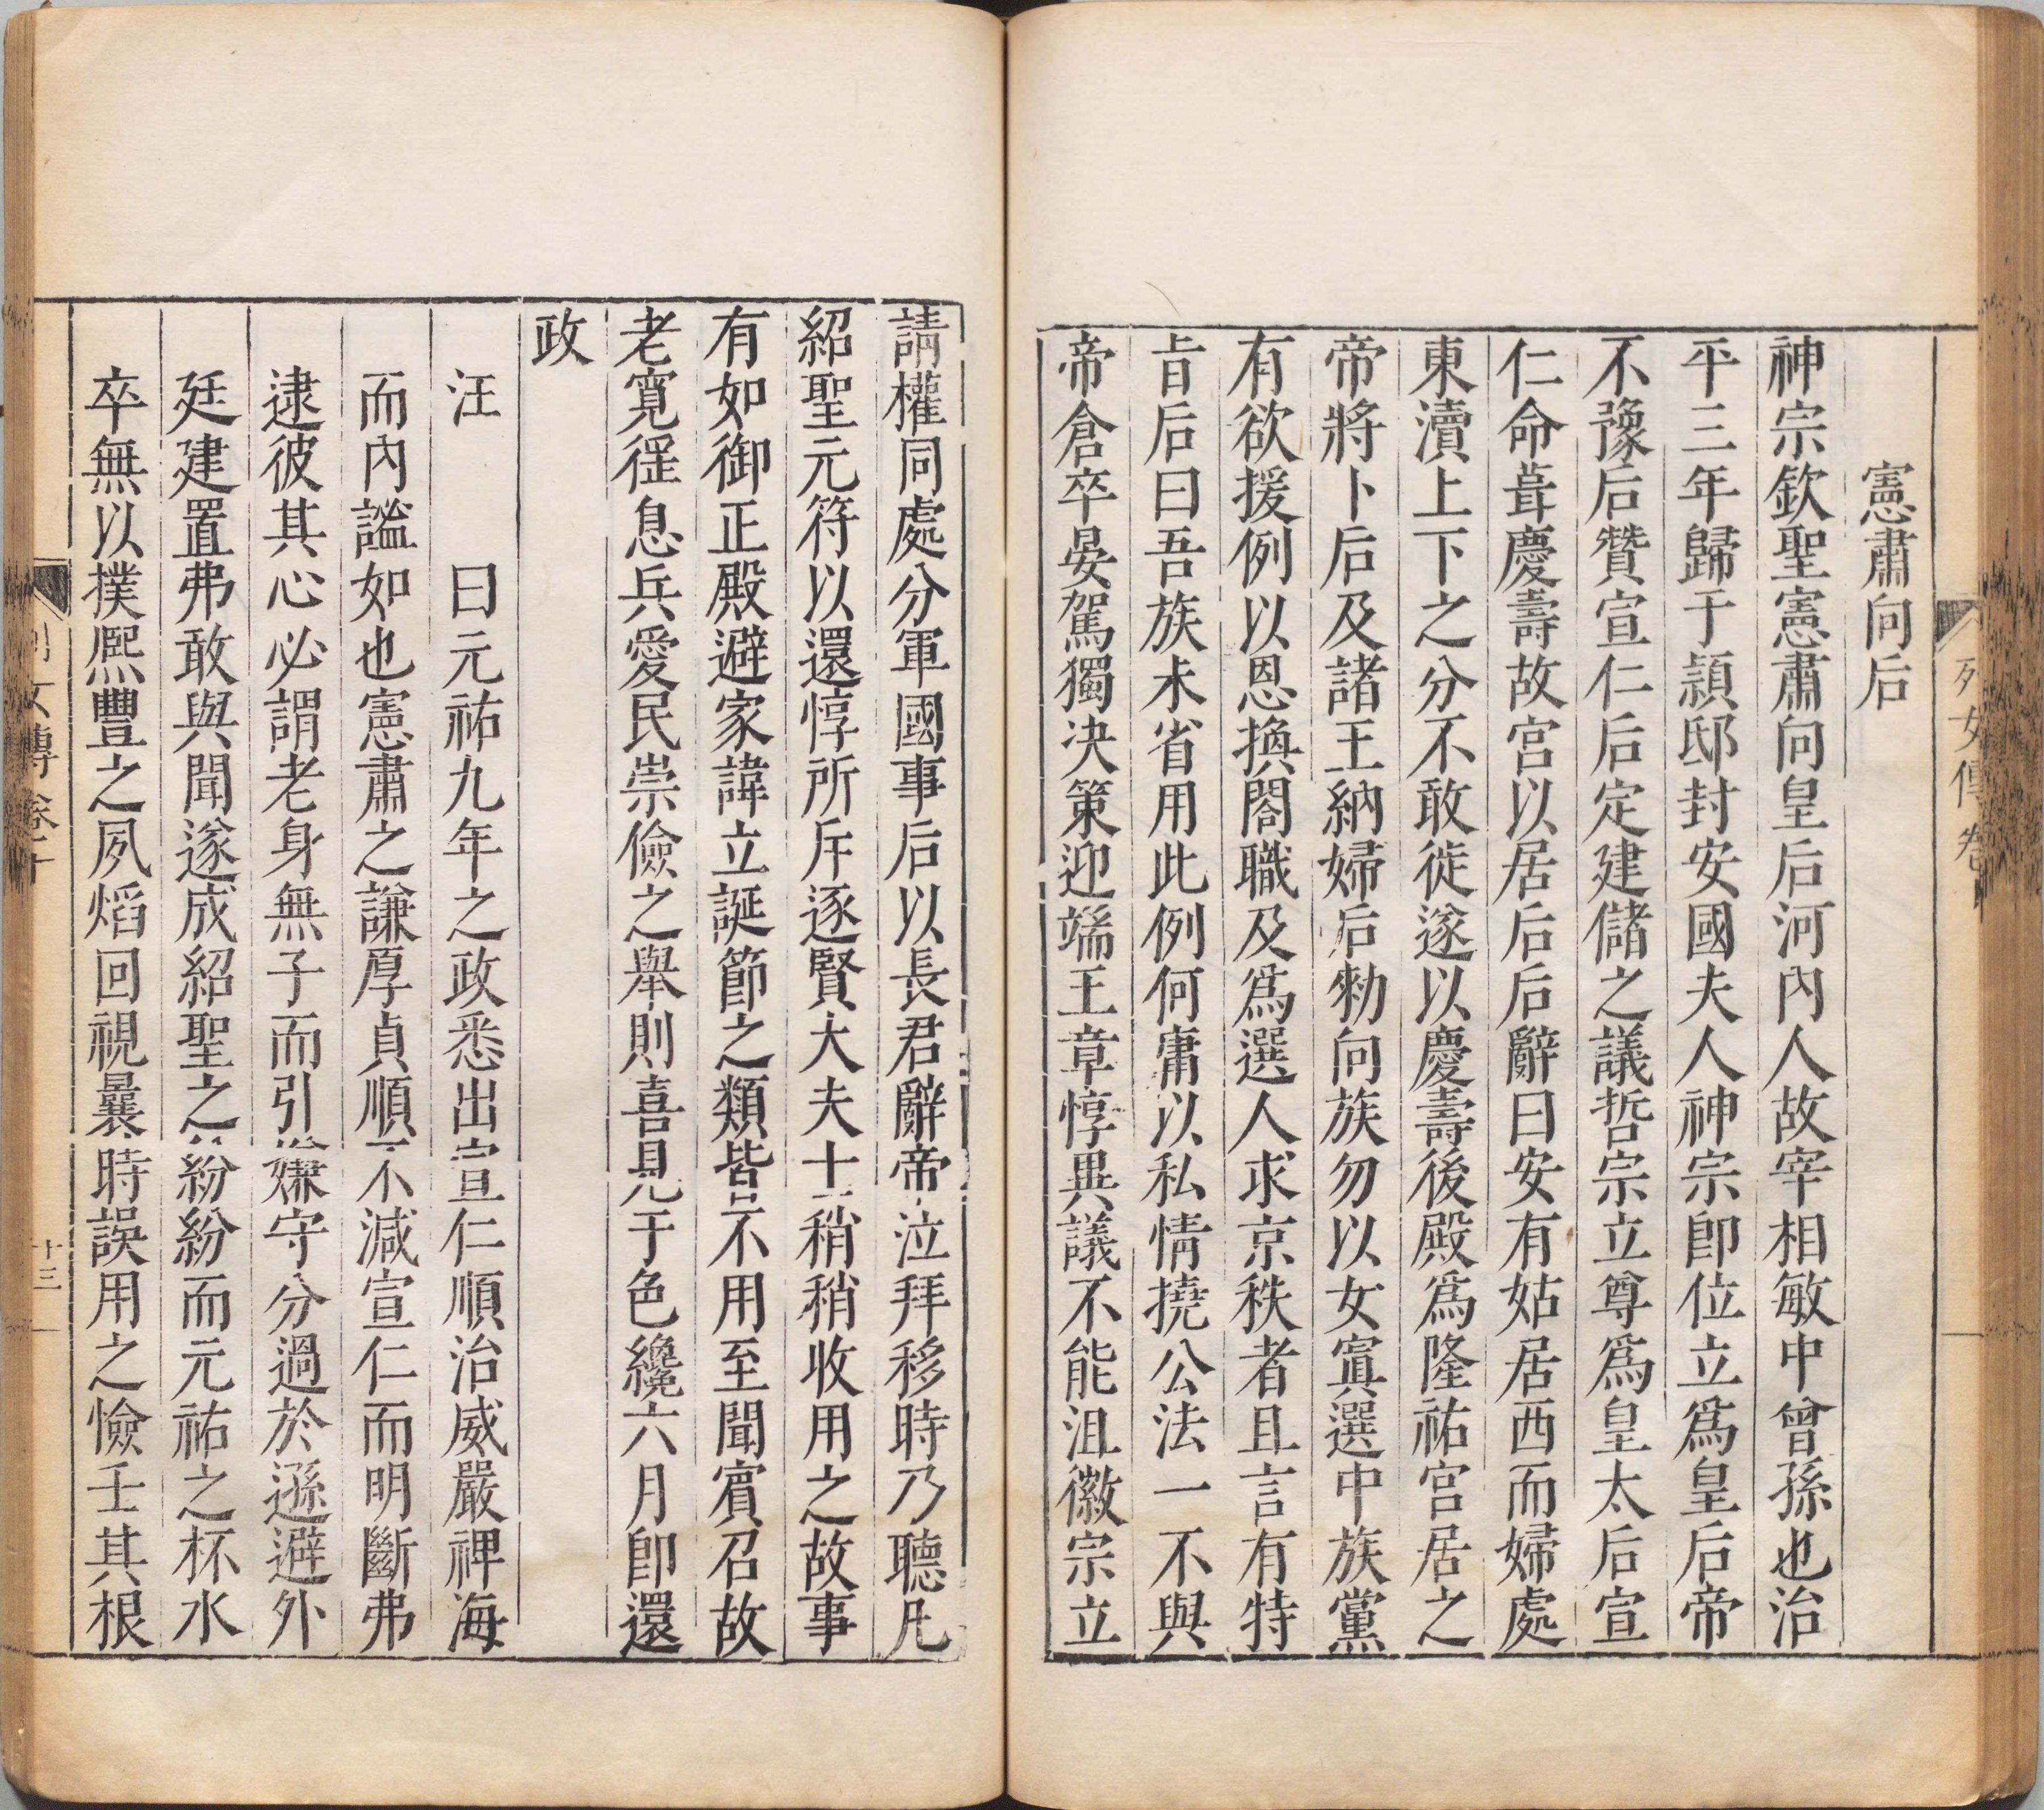 列女傳卷
憲肅向后
神宗欽聖憲肅向皇后河內人故宰相敏中曾孫也治
平三年歸于潁邸封安國夫人神宗卽位立爲皇后帝
不豫后贊宣仁后定建儲之議哲宗立尊爲皇太后宣
仁命葺慶壽故宮以居后后辭曰安有姑居西而婦處
東瀆上下之分不敢徙遂以慶壽後殿爲隆祐宮居之
帝將卜后及諸王納婦后勑向族勿以女寘選中族黨
有欲援例以恩換閤職及爲選人求京秩者且言有特
旨后曰吾族未省用此例何庸以私情撓公法一不與
帝倉卒晏駕獨決策迎端王章惇異議不能沮徽宗立
請權同處分軍國事后以長君辭帝泣拜移時乃聽凡
紹聖元符以還惇所斥逐賢大夫士稍稍收用之故事
有如御正殿避家諱立誕節之類皆不用至聞賓召故
老寬徭息兵愛民崇儉之舉則喜見于色纔六月卽還
政
汪 曰元祐九年之政悉出宣仁順治威嚴裨海
而內謐如也憲肅之謙厚貞順不減宣仁而明斷弗
逮彼其心必謂老身無子而引嫌守分過於遜避外
廷建置弗敢與聞遂成紹聖之紛紛而元祐之杯水
卒無以撲熙豐之夙焰回視曩時誤用之憸壬其根
列女傳卷十
十三